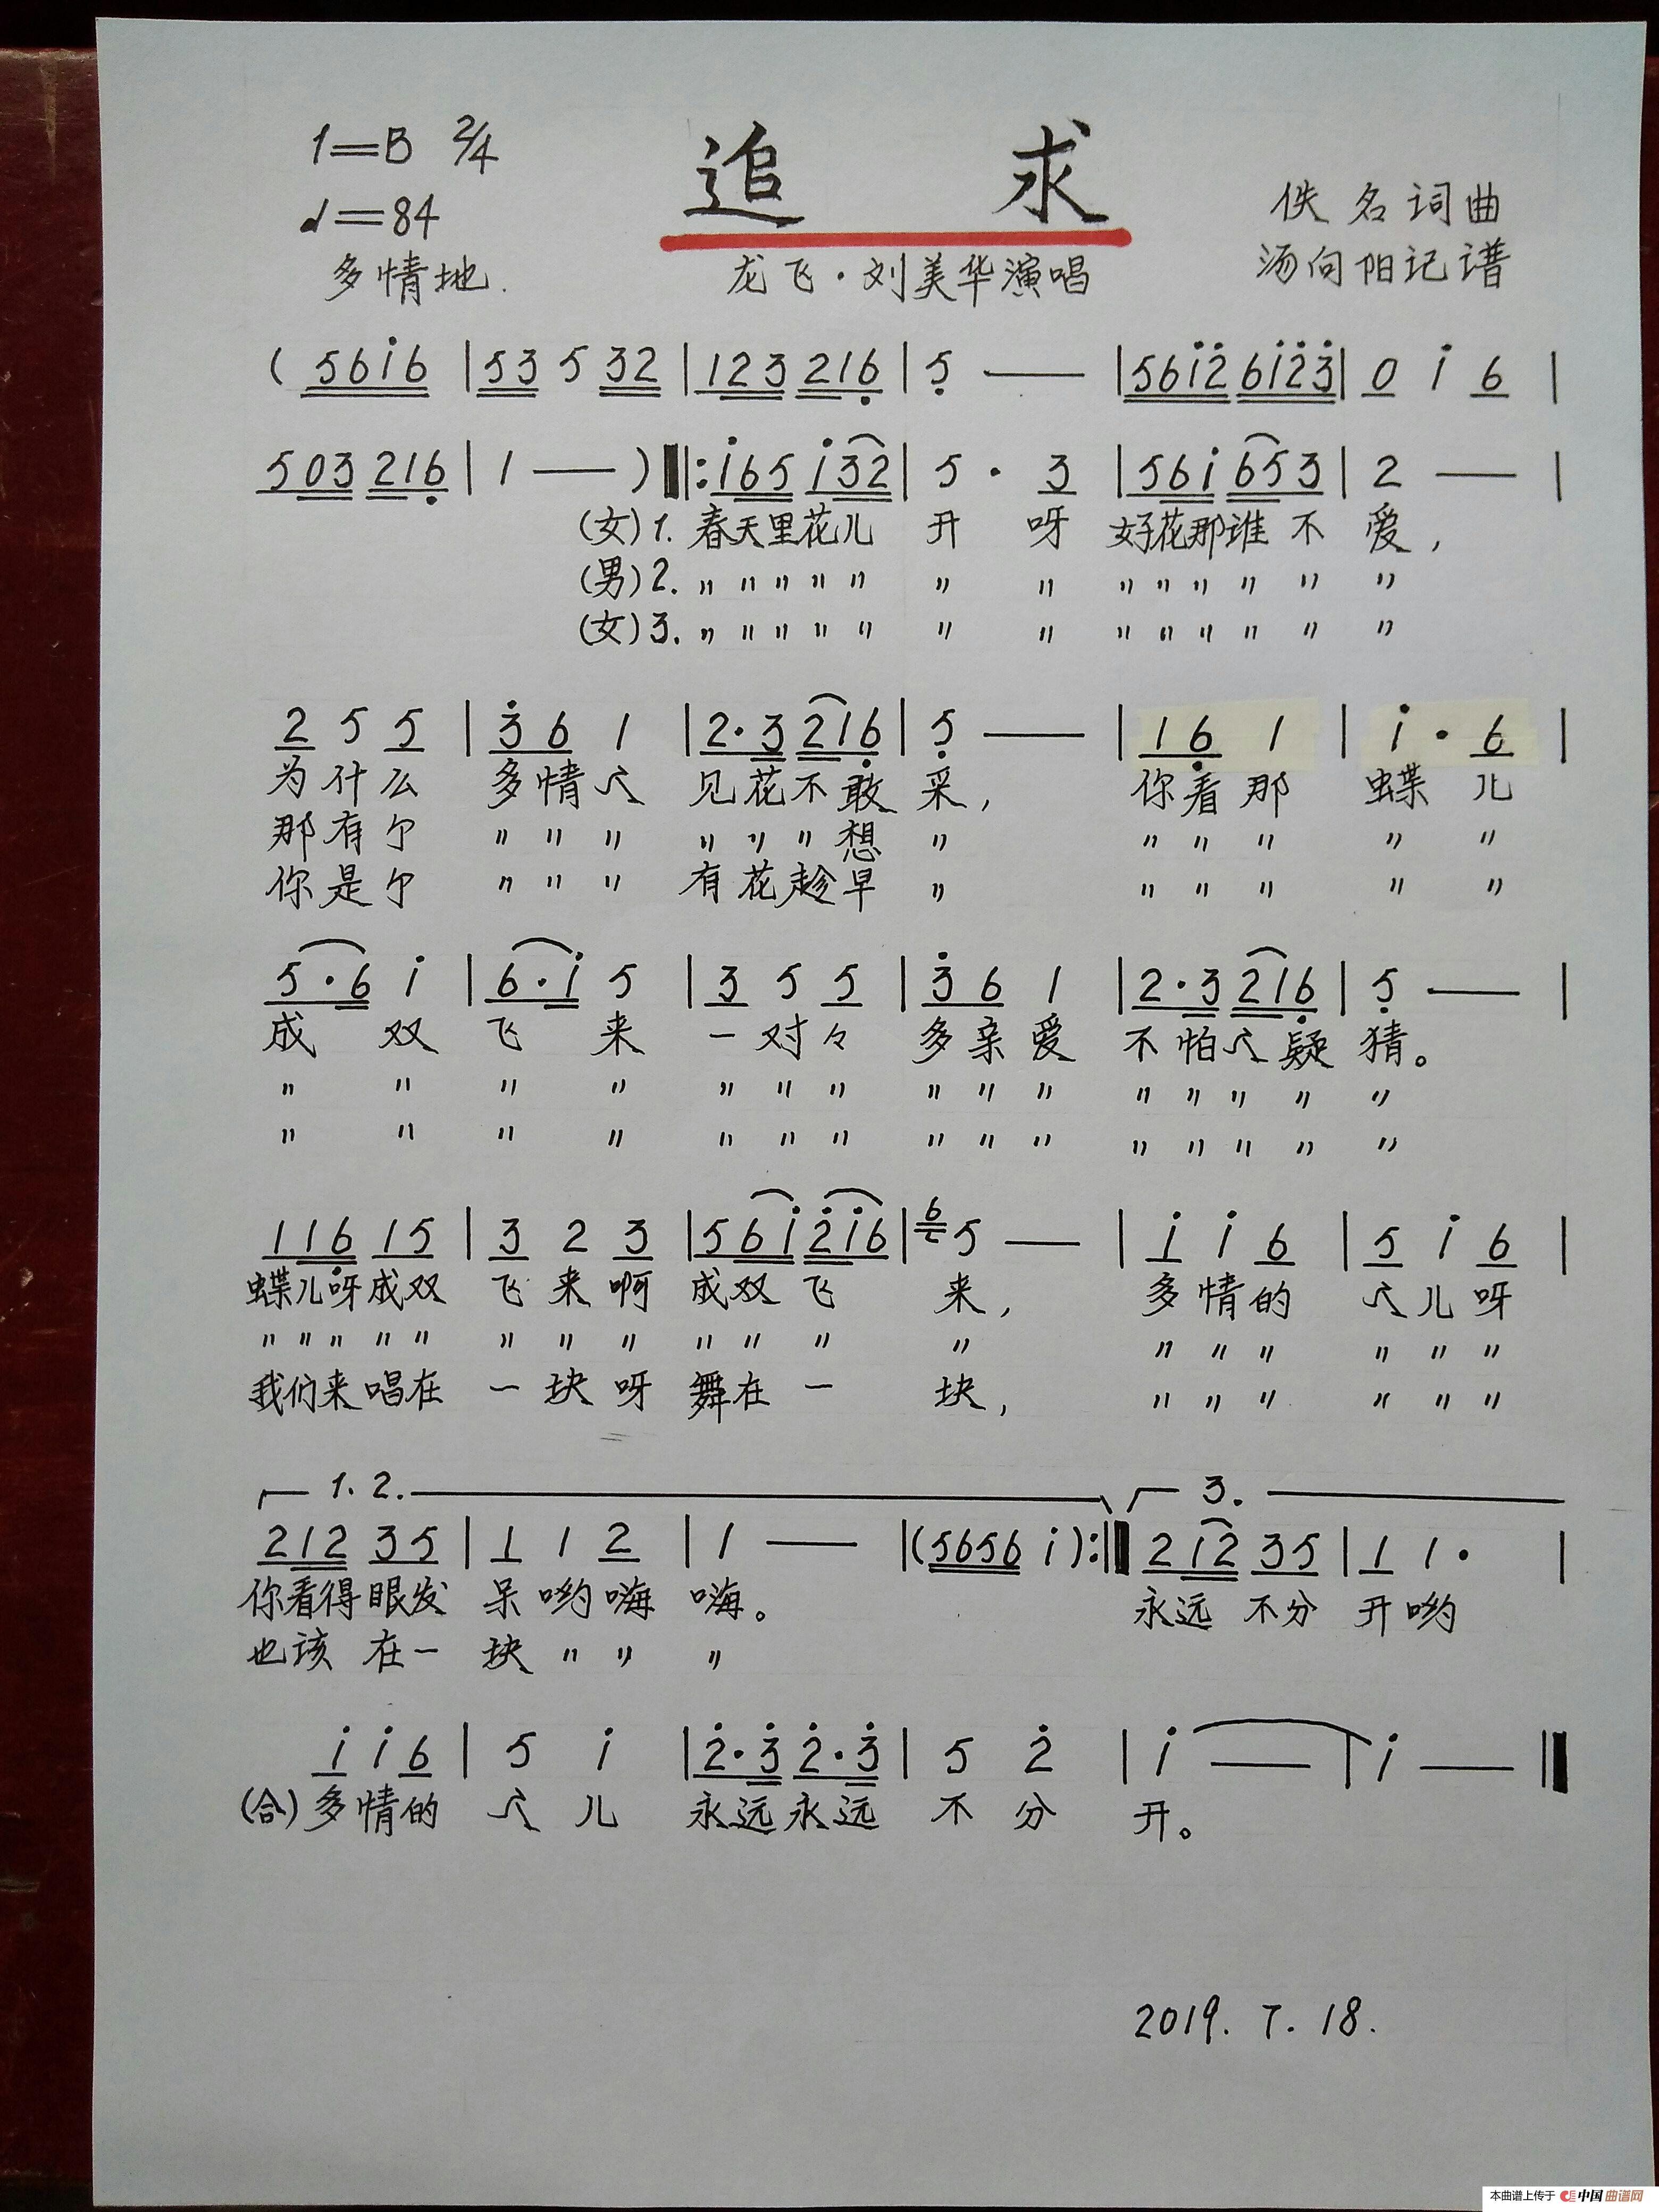 1=B 2/4
追 求
♩=84
佚名词曲
多情地.
龙飞·刘美华演唱
汤向阳记谱
( 5 6 i 6 | 5 3 5 3 2 | 1 2 3 2 1 6̣ | 5̣ — | 5 6 i 2̇ 6 i 2̇ 3̇ | 0 i 6 |
5 0 3 2 1 6̣ | 1 — ) ‖: i 6 5 i 3 2 | 5 · 3 | 5 6 i 6 5 3 | 2 — |
(女) 1. 春天里花儿 开 呀 好花那谁 不 爱,
(男) 2. 〃 〃 〃 〃 〃 〃 〃 〃 〃 〃 〃 〃 〃
(女) 3. 〃 〃 〃 〃 〃 〃 〃 〃 〃 〃 〃 〃 〃
2 5 5 | 3̇ 6 1 | 2 · 3 2 1 6̣ | 5̣ — | 1 6̣ 1 | i · 6 |
为什么 多情人 见花不敢 采, 你看那 蝶 儿
那有个 〃 〃 〃 〃 〃 〃 想 〃 〃 〃 〃 〃 〃
你是个 〃 〃 〃 有花趁早 〃 〃 〃 〃 〃 〃
5 · 6 i | 6 · i 5 | 3 5 5 | 3̇ 6 1 | 2 · 3 2 1 6̣ | 5̣ — |
成 双 飞 来 一对々 多亲爱 不怕人疑 猜。
〃 〃 〃 〃 〃 〃 〃 〃 〃 〃 〃 〃 〃 〃 〃
〃 〃 〃 〃 〃 〃 〃 〃 〃 〃 〃 〃 〃 〃 〃
1 1 6̣ 1 5 | 3 2 3 | 5 6 i 2̇ i 6 | 6 5 — | i i 6 | 5 i 6 |
蝶儿呀成双 飞来啊 成双飞 来, 多情的 人儿呀
〃 〃 〃 〃 〃 〃 〃 〃 〃 〃 〃 〃 〃 〃 〃 〃 〃 〃
我们来唱在 一块呀 舞在一 块, 〃 〃 〃 〃 〃 〃
1. 2. 3.
2 1 2 3 5 | 1 1 2 | 1 — | ( 5 6 5 6 i ) :‖ 2 1 2 3 5 | 1 1 · |
你看得眼发 呆哟嗨 嗨。 永远 不分 开哟
也该 在一 块 〃 〃 〃
i i 6 | 5 i | 2̇ · 3̇ 2̇ · 3̇ | 5 2̇ | i — | i — ‖
(合) 多情的 人 儿 永远永远 不 分 开。
2019. 7. 18.
本曲谱上传于 中国曲谱网